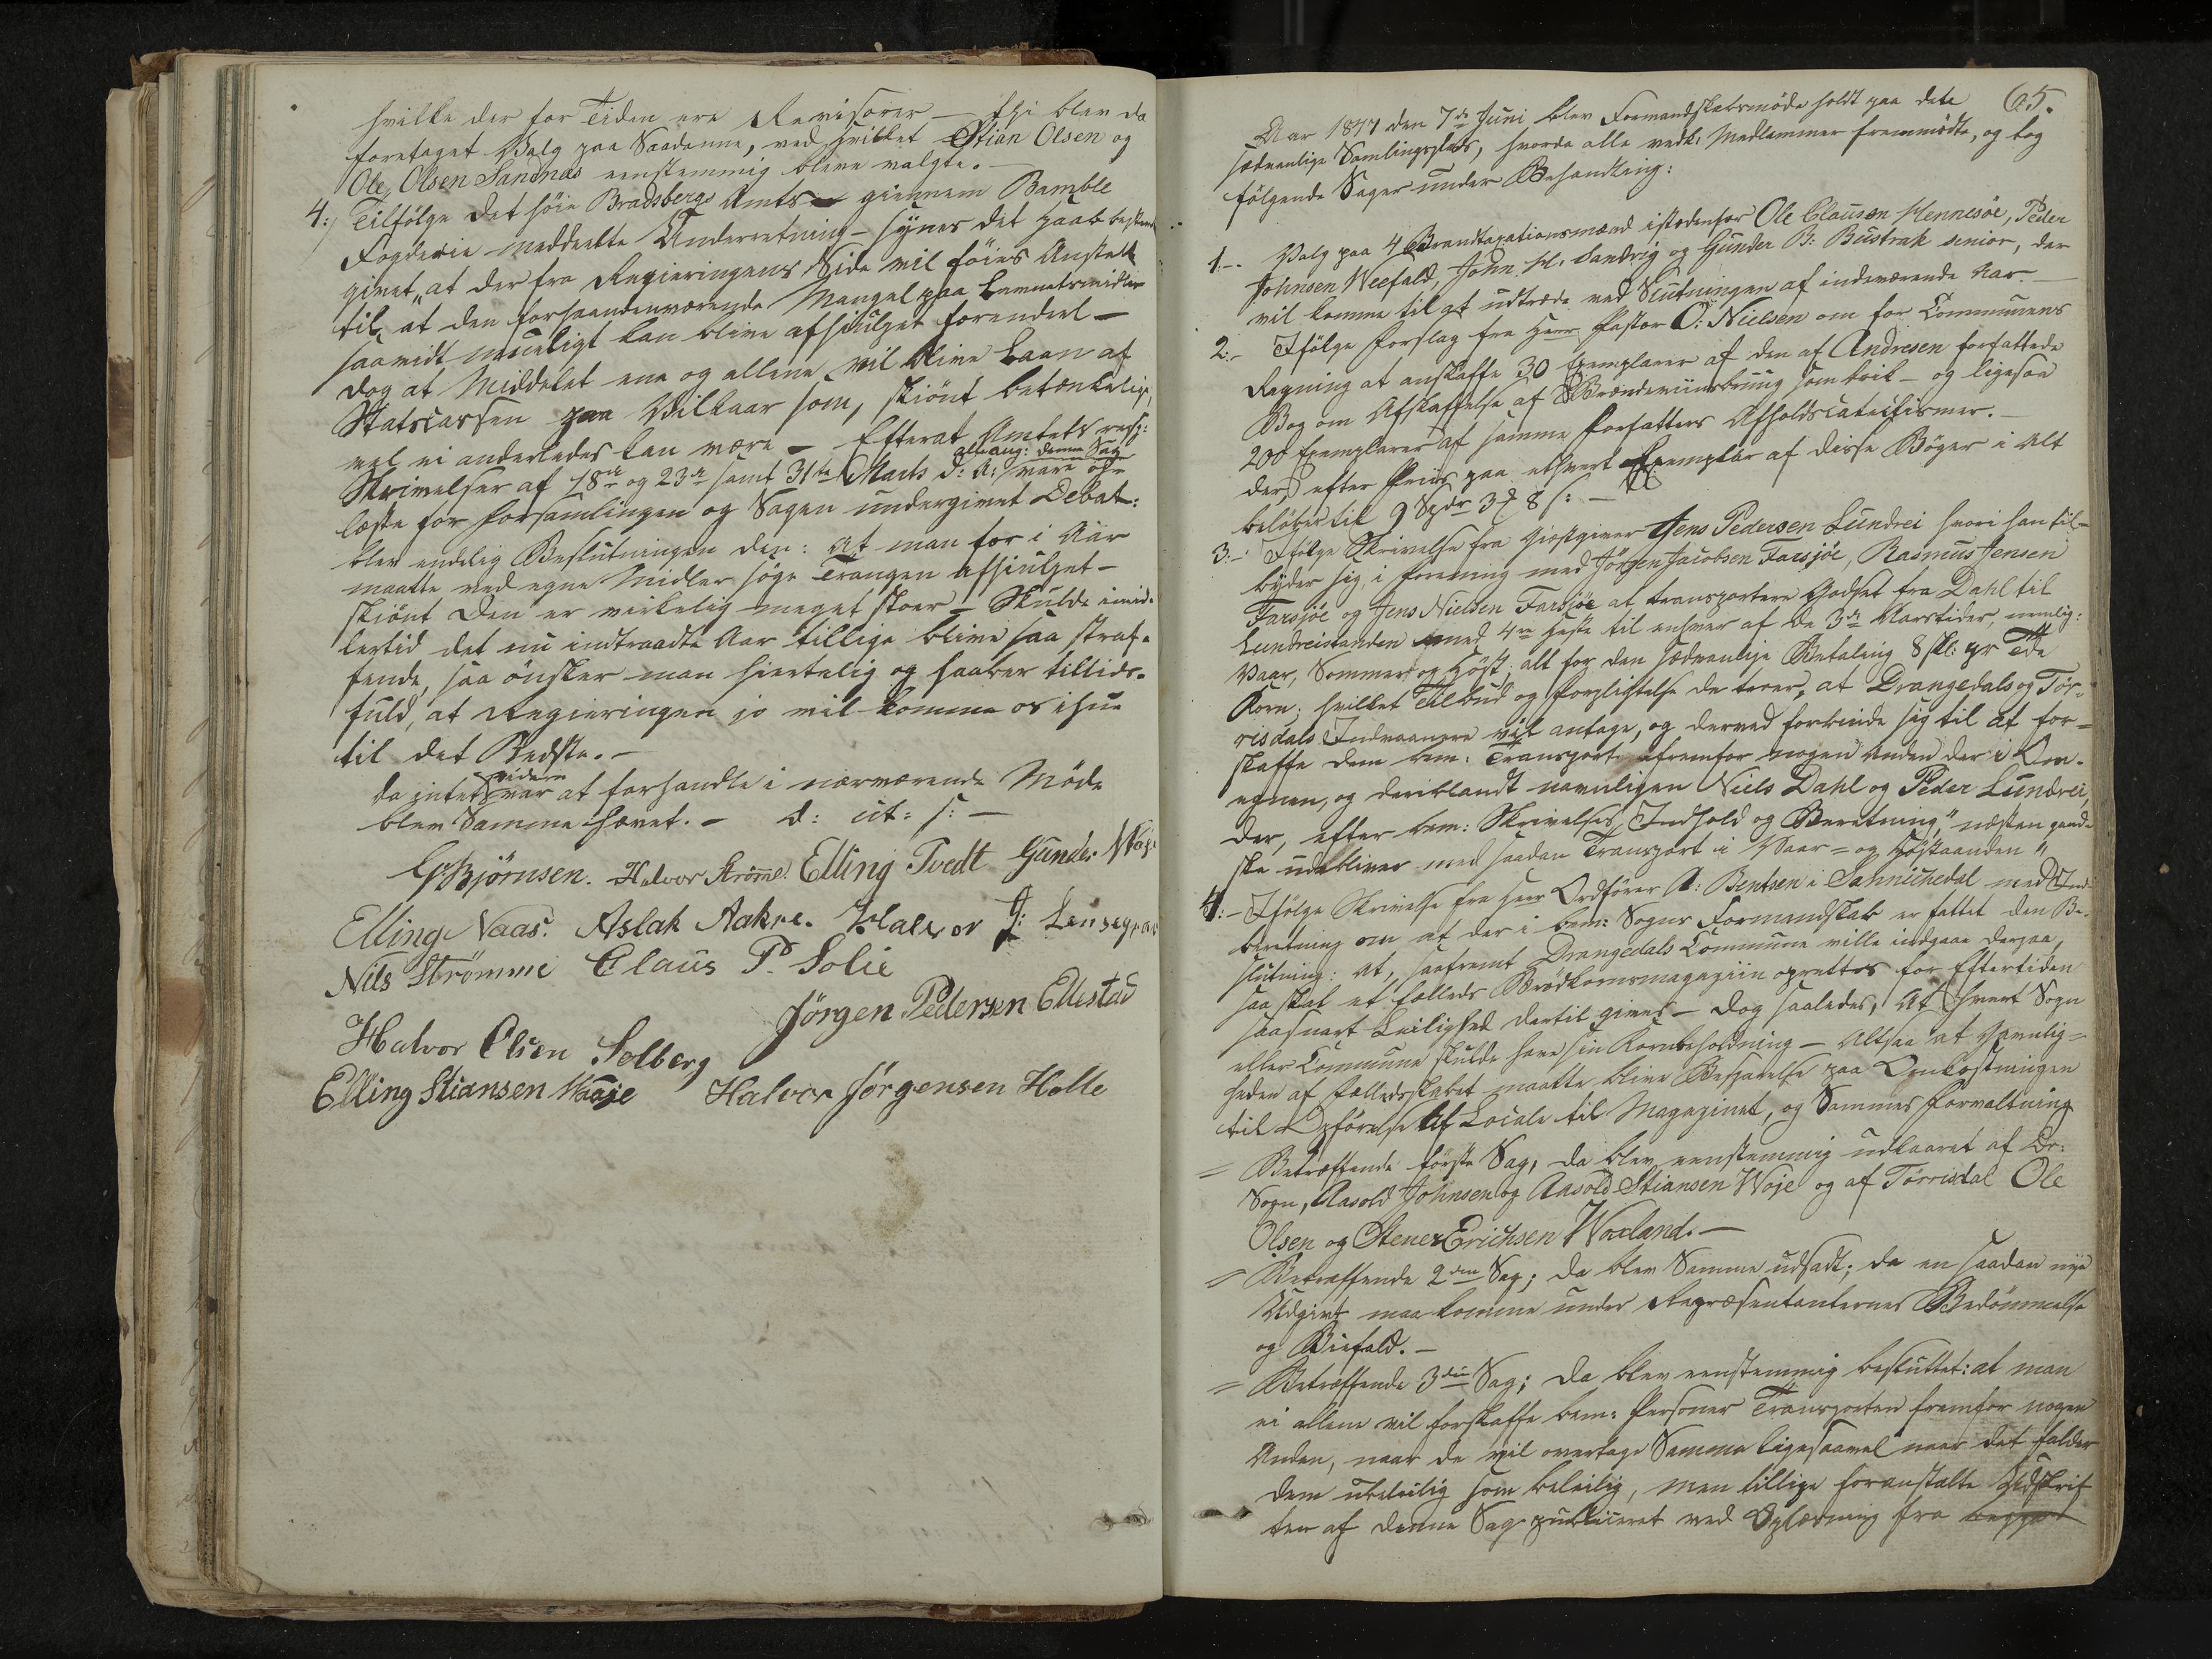 hvilke der for Tiden ere Revisorer — thi blev da
foretaget Valg paa Saadanne, ved hvilket Stian Olsen og
Ole Olsen Sannæs eenstemmig bleve valgte. —
4:/ Tilfölge det höie Bradsbergs Amts — giennem Bamble
Fogderie meddeelte Underretning — synes det Haab bestemt
givet, „at der fra Regieringens Side vil föies Anstalt
til, at den forhaandenværende Mangel paa Levnetsmidler
saavidt mueligt kan blive afhiulpet forendeel —
dog at Middelet ene og allene vil blive Laan af
Statscassen paa Vilkaar som, skiönt betænkelige,
vel ei anderledes kan være — Efterat Amtets resp:
ang: denne Sag
Skrivelser af 18de og 23de samt 31te Marts d: A: vare op-
læste for Forsamlingen og Sagen undergivet Debat:
blev endelig Beslutningen den: At man for i Aar
maatte ved egne Midler söge Trangen afhiulpet —
skiönt den er virkelig meget stoer — Skulde imid-
lertid det nu indtraadte Aar tillige blive saa straf-
fende, saa önsker man hiertelig og haaber tillids-
fuld, at Regieringen jo vil komme os ihu
til det Bedste. —
videre
da intet var at forhandle i nærværende Möde
blev Samme hævet. — d: ut: s: —
G Björnsen. Halvor Strömme. Elling Tvedt Gunder Woje
Elling Naas. Aslak Aakre. Halvor J: Lensegrav
Nils Strömme Claus P. Solie
Jörgen Pedersen Ellestad
Halvor Olsen Solberg
Elling Stiansen Waaje Halvor Jörgensen Holte
65.
Aar 1847 den 7de Juni blev Formandskabsmöde holdt paa dets
sædvanlige Samlingsplads, hvorda alle vedk: Medlemmer fremmödte, og tog
fölgende Sager under Behandling:
1:— Valg paa 4 Brandtaxationsmænd istedenfor Ole Clausen Hennesöe, Peder
Johnsen Weefald, John H. Sandvig og Gunder B: Bustrak senior, der
vil komme til at udtræde ved Slutningen af indeværende Aar. —
2:— Ifölge Forslag fra Herr Pastor O: Nielsen om for Communens
Regning at anskaffe 30 Exemplarer af den af Andresen forfattede
Bog om Afskaffelse af Brændeviinsbrug som Drik — og ligesaa
200 Exemplarer af samme Forfatters Afholdscatechismer. —
der, efter Priis paa ethvert Exemplar af disse Böger i Alt
belöber til 9 Spdr 3 8 s: —
3:— Ifölge Skrivelse fra Giæstgiver Jens Pedersen Lundrei hvori han til-
byder sig i Forening med Jörgen Jacobsen Farsjöe, Rasmus Jensen
Farsjöe og Jens Nielsen Farsjöe at transportere Godset fra Dahl til
Lundreistranden med 4re Heste til enhver af de 3de Aarstider, nemlig:
Vaar, Sommer og Höst, alt for den sædvanlige Betaling 8 skl: pr Tde
Korn; hvilket Tilbud og Forpligtelse de troer, at Drangedals og Tör-
risdals Indvaanere vil antage, og derved forbinde sig til at for-
skaffe dem bem: Transport fremfor nogen Anden der i Om-
egnen, og deriblandt navnligen Niels Dahl og Peder Lundrei,
der, efter bem: Skrivelses Indhold og Beretning, „næsten gand-
ske udebliver med saadan Transport i Vaar- og Höstaanden“,
4:— Ifölge Skrivelse fra Herr Ordförer A: Bentsen i Sannichedal med Ind-
beretning om at der i bem: Sogns Formandskab er fattet den Be-
slutning: At, saafremt Drangedals Commune ville indgaae derpaa,
saa skal et fælleds Brödkornsmagaziin oprettes for Eftertiden
saasnart Leilighed dertil gives — dog saaledes, at hvert Sogn
eller Commune skulde have sin Kornbeholdning — Altsaa at Gavnlig-
heden af Fælledsskabet maatte blive Besparelse paa Omkostningen
til Opförelse af Locale til Magazinet, og Sammes Forvaltning
= Betræffende förste Sag, da blev eenstemmig udkaaret af Dr:
Sogn, Aasold Johnsen og Aasold Stiansen Woje og af Törrisdal Ole
Olsen og Stener Erichsen Woxland. —
= Betræffende 2den Sag; da blev Samme udsadt; da en saadan nye
Udgivt maa komme under Repræsentanternes Bedömmelse
og Biefald. —
= Betræffende 3die Sag; da blev eenstemmig besluttet: at man
ei allene vil forskaffe bem: Personer Transporten fremfor nogen
Anden, naar de vil overtage Samme ligesaavel naar det falder
dem ubeleilig som beleilig, men tillige foranstalte Udskrif
ten af denne Sag publiceret ved Oplæsning fra